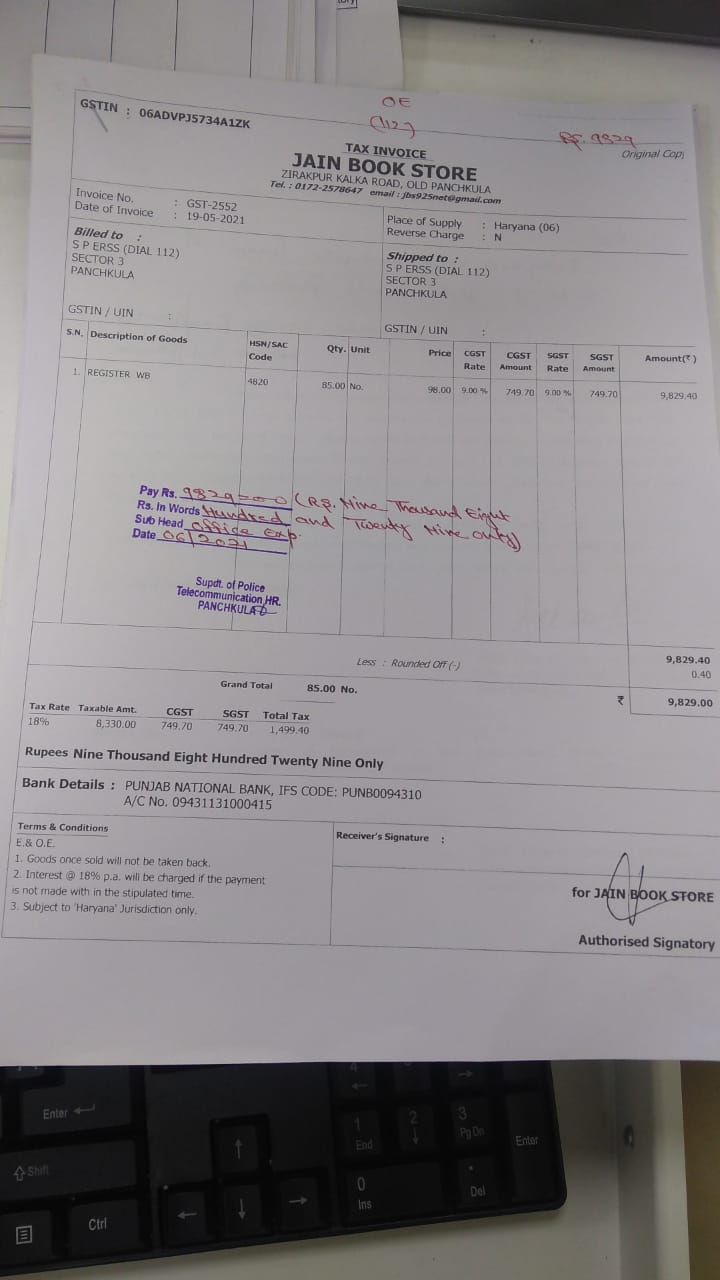 OE
(112)
Rs. 9829
GSTIN : 06ADVPJ5734A1ZK
Original Copy
TAX INVOICE
JAIN BOOK STORE
ZIRAKPUR KALKA ROAD, OLD PANCHKULA
Tel. : 0172-2578647 email : jbs925net@gmail.com
Invoice No. : GST-2552
Date of Invoice : 19-05-2021
Place of Supply : Haryana (06)
Reverse Charge : N
Billed to :
S P ERSS (DIAL 112)
SECTOR 3
PANCHKULA
GSTIN / UIN :
Shipped to :
S P ERSS (DIAL 112)
SECTOR 3
PANCHKULA
GSTIN / UIN :
S.N. Description of Goods HSN/SAC Code Qty. Unit Price CGST Rate CGST Amount SGST Rate SGST Amount Amount(₹)
1. REGISTER WB 4820 85.00 No. 98.00 9.00 % 749.70 9.00 % 749.70 9,829.40
Pay Rs. 9829=00 (Rs. Nine Thousand Eight
Rs. In Words Hundred and Twenty Nine only)
Sub Head office Exp.
Date 06/2021
Supdt. of Police
Telecommunication, HR.
PANCHKULA
9,829.40
Less : Rounded Off (-) 0.40
Grand Total 85.00 No. ₹ 9,829.00
Tax Rate Taxable Amt. CGST SGST Total Tax
18% 8,330.00 749.70 749.70 1,499.40
Rupees Nine Thousand Eight Hundred Twenty Nine Only
Bank Details : PUNJAB NATIONAL BANK, IFS CODE: PUNB0094310
A/C No. 09431131000415
Terms & Conditions
E.& O.E.
1. Goods once sold will not be taken back.
2. Interest @ 18% p.a. will be charged if the payment
is not made with in the stipulated time.
3. Subject to 'Haryana' Jurisdiction only.
Receiver's Signature :
for JAIN BOOK STORE
Authorised Signatory
Enter
Shift
Ctrl
1
End
2
3
Pg Dn
Enter
0
Ins
.
Del